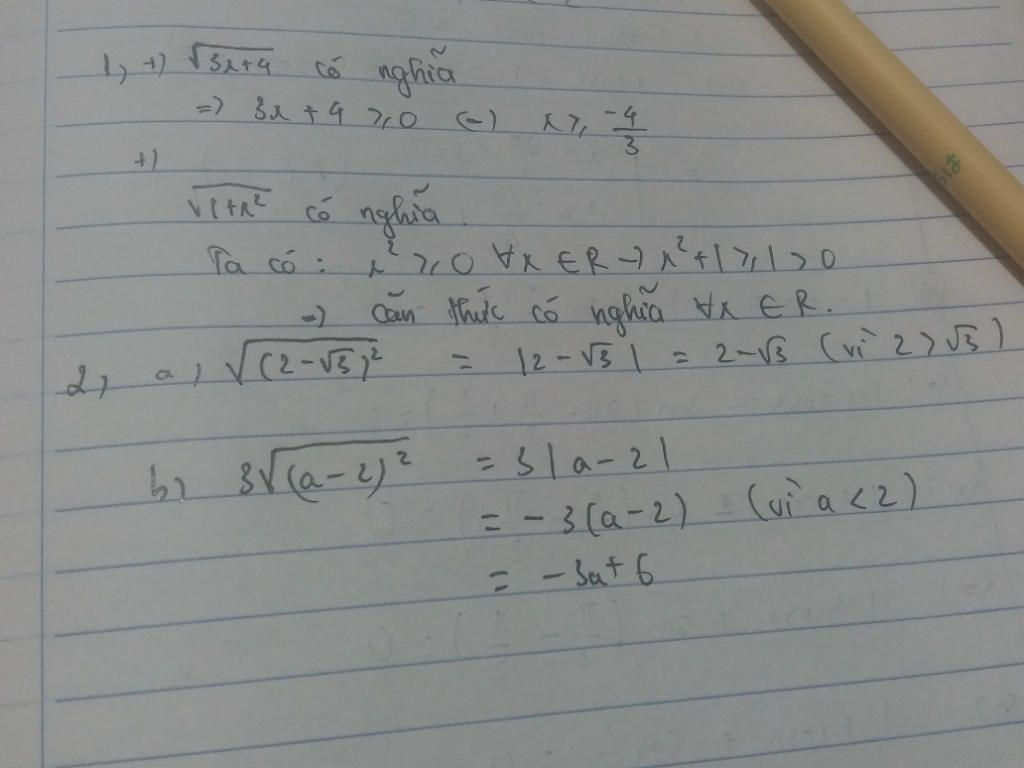 1, +) √3x+4 có nghĩa
=> 3x + 4 ≥ 0 (-) x ≥ -4/3
+)
√1+x² có nghĩa
Ta có: x² ≥ 0 ∀x ∈ R → x²+1 ≥ 1 > 0
=> căn thức có nghĩa ∀x ∈ R.
2, a, √(2-√3)² = |2-√3| = 2-√3 (vì 2 > √3)
b, 3√(a-2)² = 3|a-2|
= -3(a-2) (vì a < 2)
= -3a+6